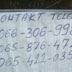 КОНТАКТ ТЕЛЕ
066-306-99
065-876-47
065-421-03